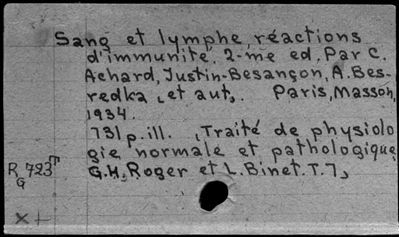 Sang et lymphe, réactions
d'immunité. 2-me ed. Par C.
Achard, Justin-Besançon, A. Bes-
redka, et aut. Paris, Masson,
1934.
731 p. ill. (Traité de physiolo
gie normale et pathologique
R 723T G.H. Roger et L. Binet. T. 7)
G
X+